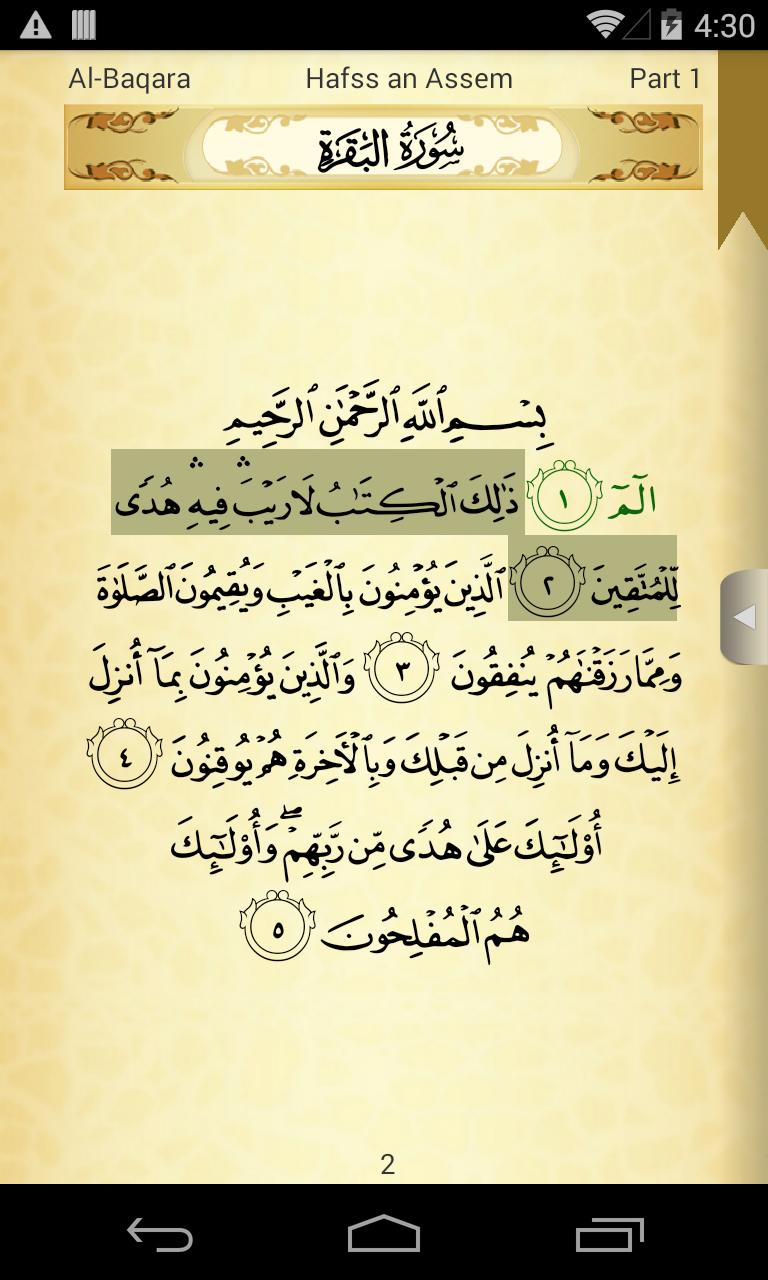 4:30
Al-Baqara Hafss an Assem Part 1
سُورَةُ البَقَرَةِ
بِسْمِ ٱللَّهِ ٱلرَّحْمَٰنِ ٱلرَّحِيمِ
الٓمٓ ١ ذَٰلِكَ ٱلْكِتَٰبُ لَا رَيْبَ ۛ فِيهِ ۛ هُدًى
لِّلْمُتَّقِينَ ٢ ٱلَّذِينَ يُؤْمِنُونَ بِٱلْغَيْبِ وَيُقِيمُونَ ٱلصَّلَوٰةَ
وَمِمَّا رَزَقْنَٰهُمْ يُنفِقُونَ ٣ وَٱلَّذِينَ يُؤْمِنُونَ بِمَآ أُنزِلَ
إِلَيْكَ وَمَآ أُنزِلَ مِن قَبْلِكَ وَبِٱلْأَخِرَةِ هُمْ يُوقِنُونَ ٤
أُوْلَٰٓئِكَ عَلَىٰ هُدًى مِّن رَّبِّهِمْ ۖ وَأُوْلَٰٓئِكَ
هُمُ ٱلْمُفْلِحُونَ ٥
2